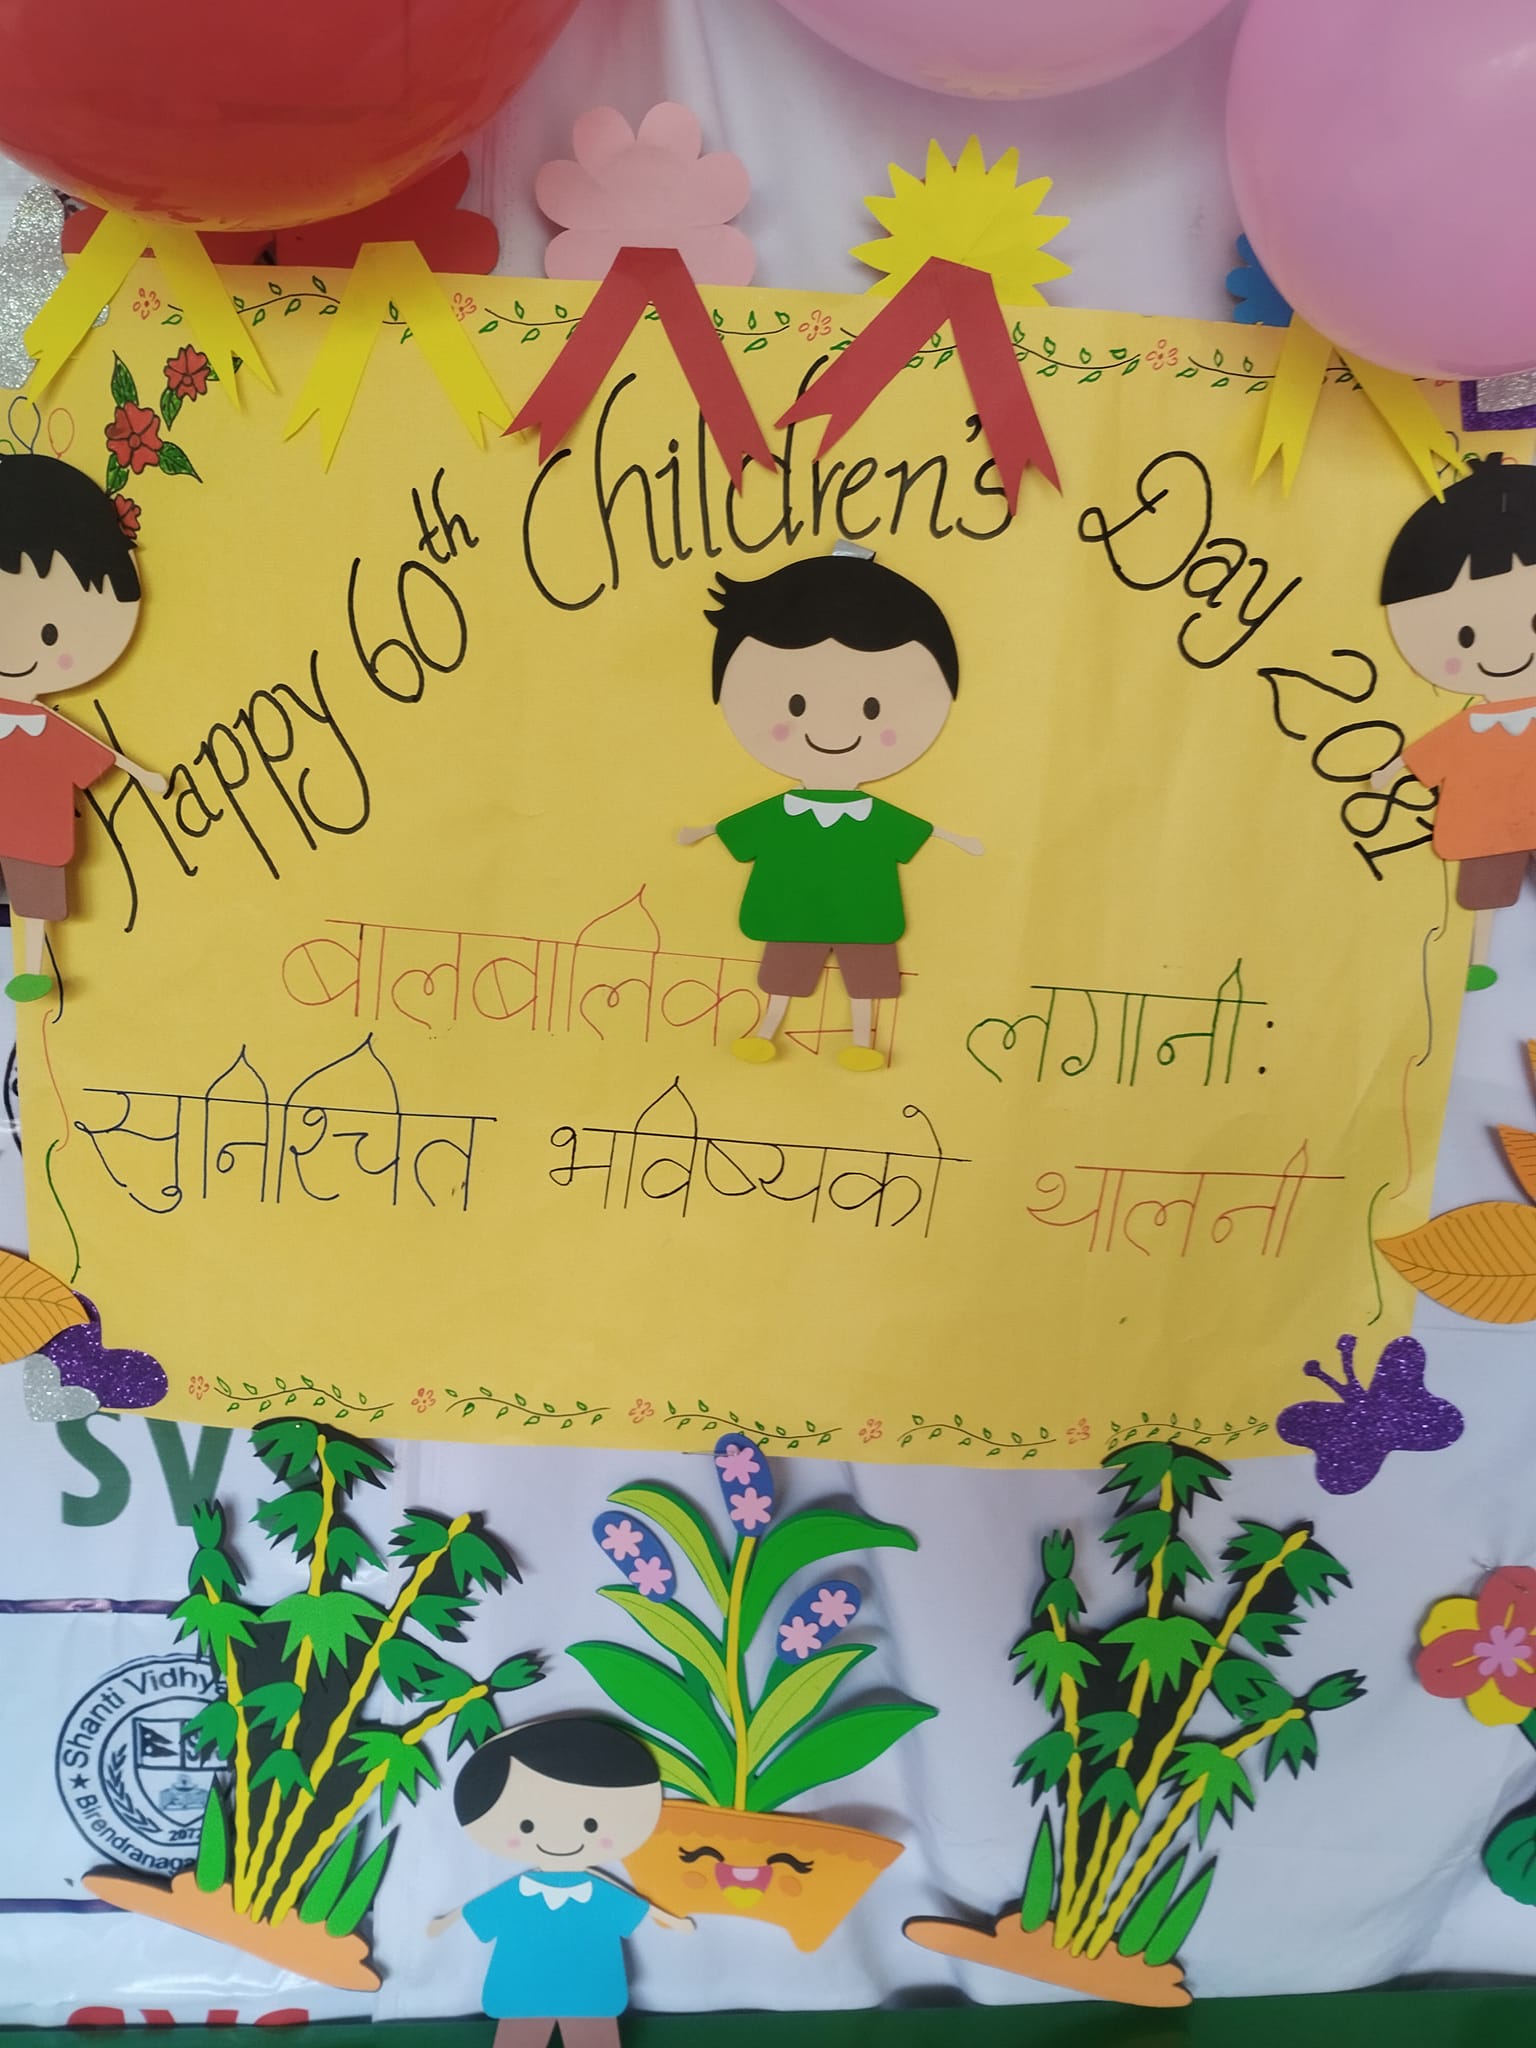 Happy 60th Children's Day 2081
बालबालिकामा लगानी:
सुनिश्चित भविष्यको थालनी
SV
Shanti Vidhy
Birendranaga
2072
SVS